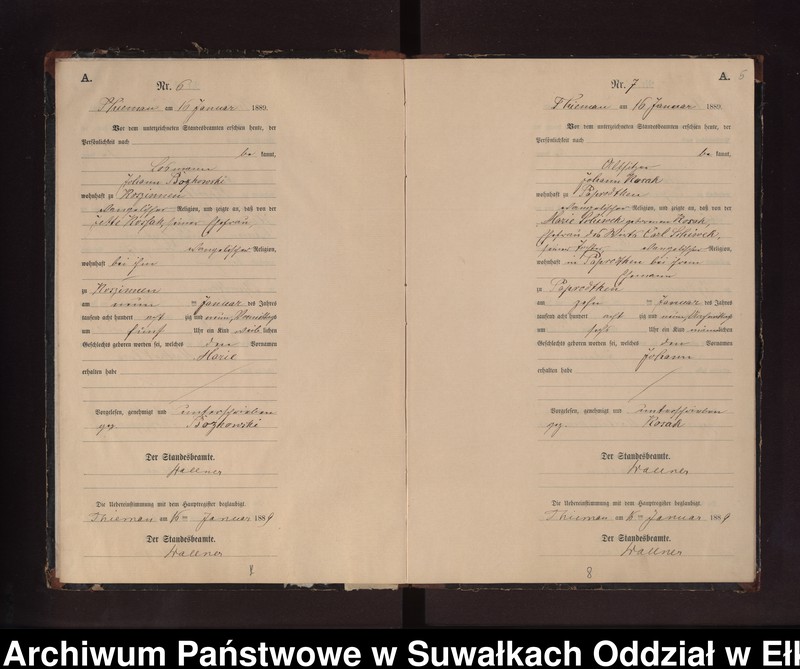 A.
Nr. 6
Thieman am 16 Januar 1889.
Vor dem unterzeichneten Standesbeamten erschien heute, der
Persönlichkeit nach
be kannt,
Losmann
Johann Bozkowski
wohnhaft zu
evangelischer Religion, und zeigte an, daß von der
seiner Ehefrau,
evangelischer Religion,
wohnhaft bei ihm
zu
am neun ten Januar des Jahres
tausend acht hundert acht zig und neun, Vormittags
um fünf Uhr ein Kind weib lichen
Geschlechts geboren worden sei, welches den Vornamen
Marie
erhalten habe
Vorgelesen, genehmigt und unterschrieben
gez. Bozkowski
Der Standesbeamte.
Wallner
Die Uebereinstimmung mit dem Hauptregister beglaubigt.
Thieman am 16ten Januar 1889
Der Standesbeamte.
Wallner
A.
6
Nr. 7
Thieman am 16 Januar 1889.
Vor dem unterzeichneten Standesbeamten erschien heute, der
Persönlichkeit nach
be kannt,
Altsitzer
Johann Kosak
wohnhaft zu Paprodtken
evangelischer Religion, und zeigte an, daß von der
Marie geborenen Kosak,
Ehefrau des Wirts Carl
seiner Tochter, evangelischer Religion,
wohnhaft in Paprodtken bei ihrem
Ehemann
zu Paprodtken
am zehn ten Januar des Jahres
tausend acht hundert acht zig und neun, Nachmittags
um sechs Uhr ein Kind männ lichen
Geschlechts geboren worden sei, welches den Vornamen
Johann
erhalten habe
Vorgelesen, genehmigt und unterschrieben
gez. Kosak
Der Standesbeamte.
Wallner
Die Uebereinstimmung mit dem Hauptregister beglaubigt.
Thieman am 16ten Januar 1889
Der Standesbeamte.
Wallner
8
Archiwum Państwowe w Suwałkach Oddział w Ełk